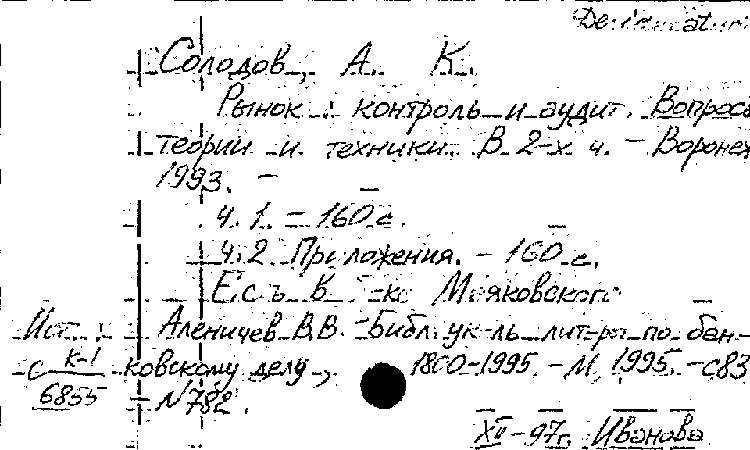 Солодов, А. К.
Рынок: контроль и аудит. Вопросы
теории и техники. В 2-х ч. – Воронеж
1993. –
Ч. 1. – 160 с.
Ч. 2 Приложения. – 160 с.
Есть в Маяковского
Ист.: Аленичев В.В. Библ. ук-ль лит-ры по бан-
с К-1 ковскому делу, 1800–1995. – М, 1995. – с83
6855 – N782.
XII–97г. Иванова